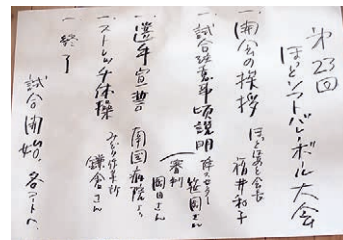 第23回
ほっとソフトバレーボール大会
一. 開会の挨拶 ほっとはあと会長 福井和子
一. 試合注意事項説明 障スセンター 笹岡さん
審判 岡田さん
一. 選手宣誓 南国病院より
一. ストレッチ体操 みどり作業所 鎌倉さん
一. 終了
試合開始。各コートへ